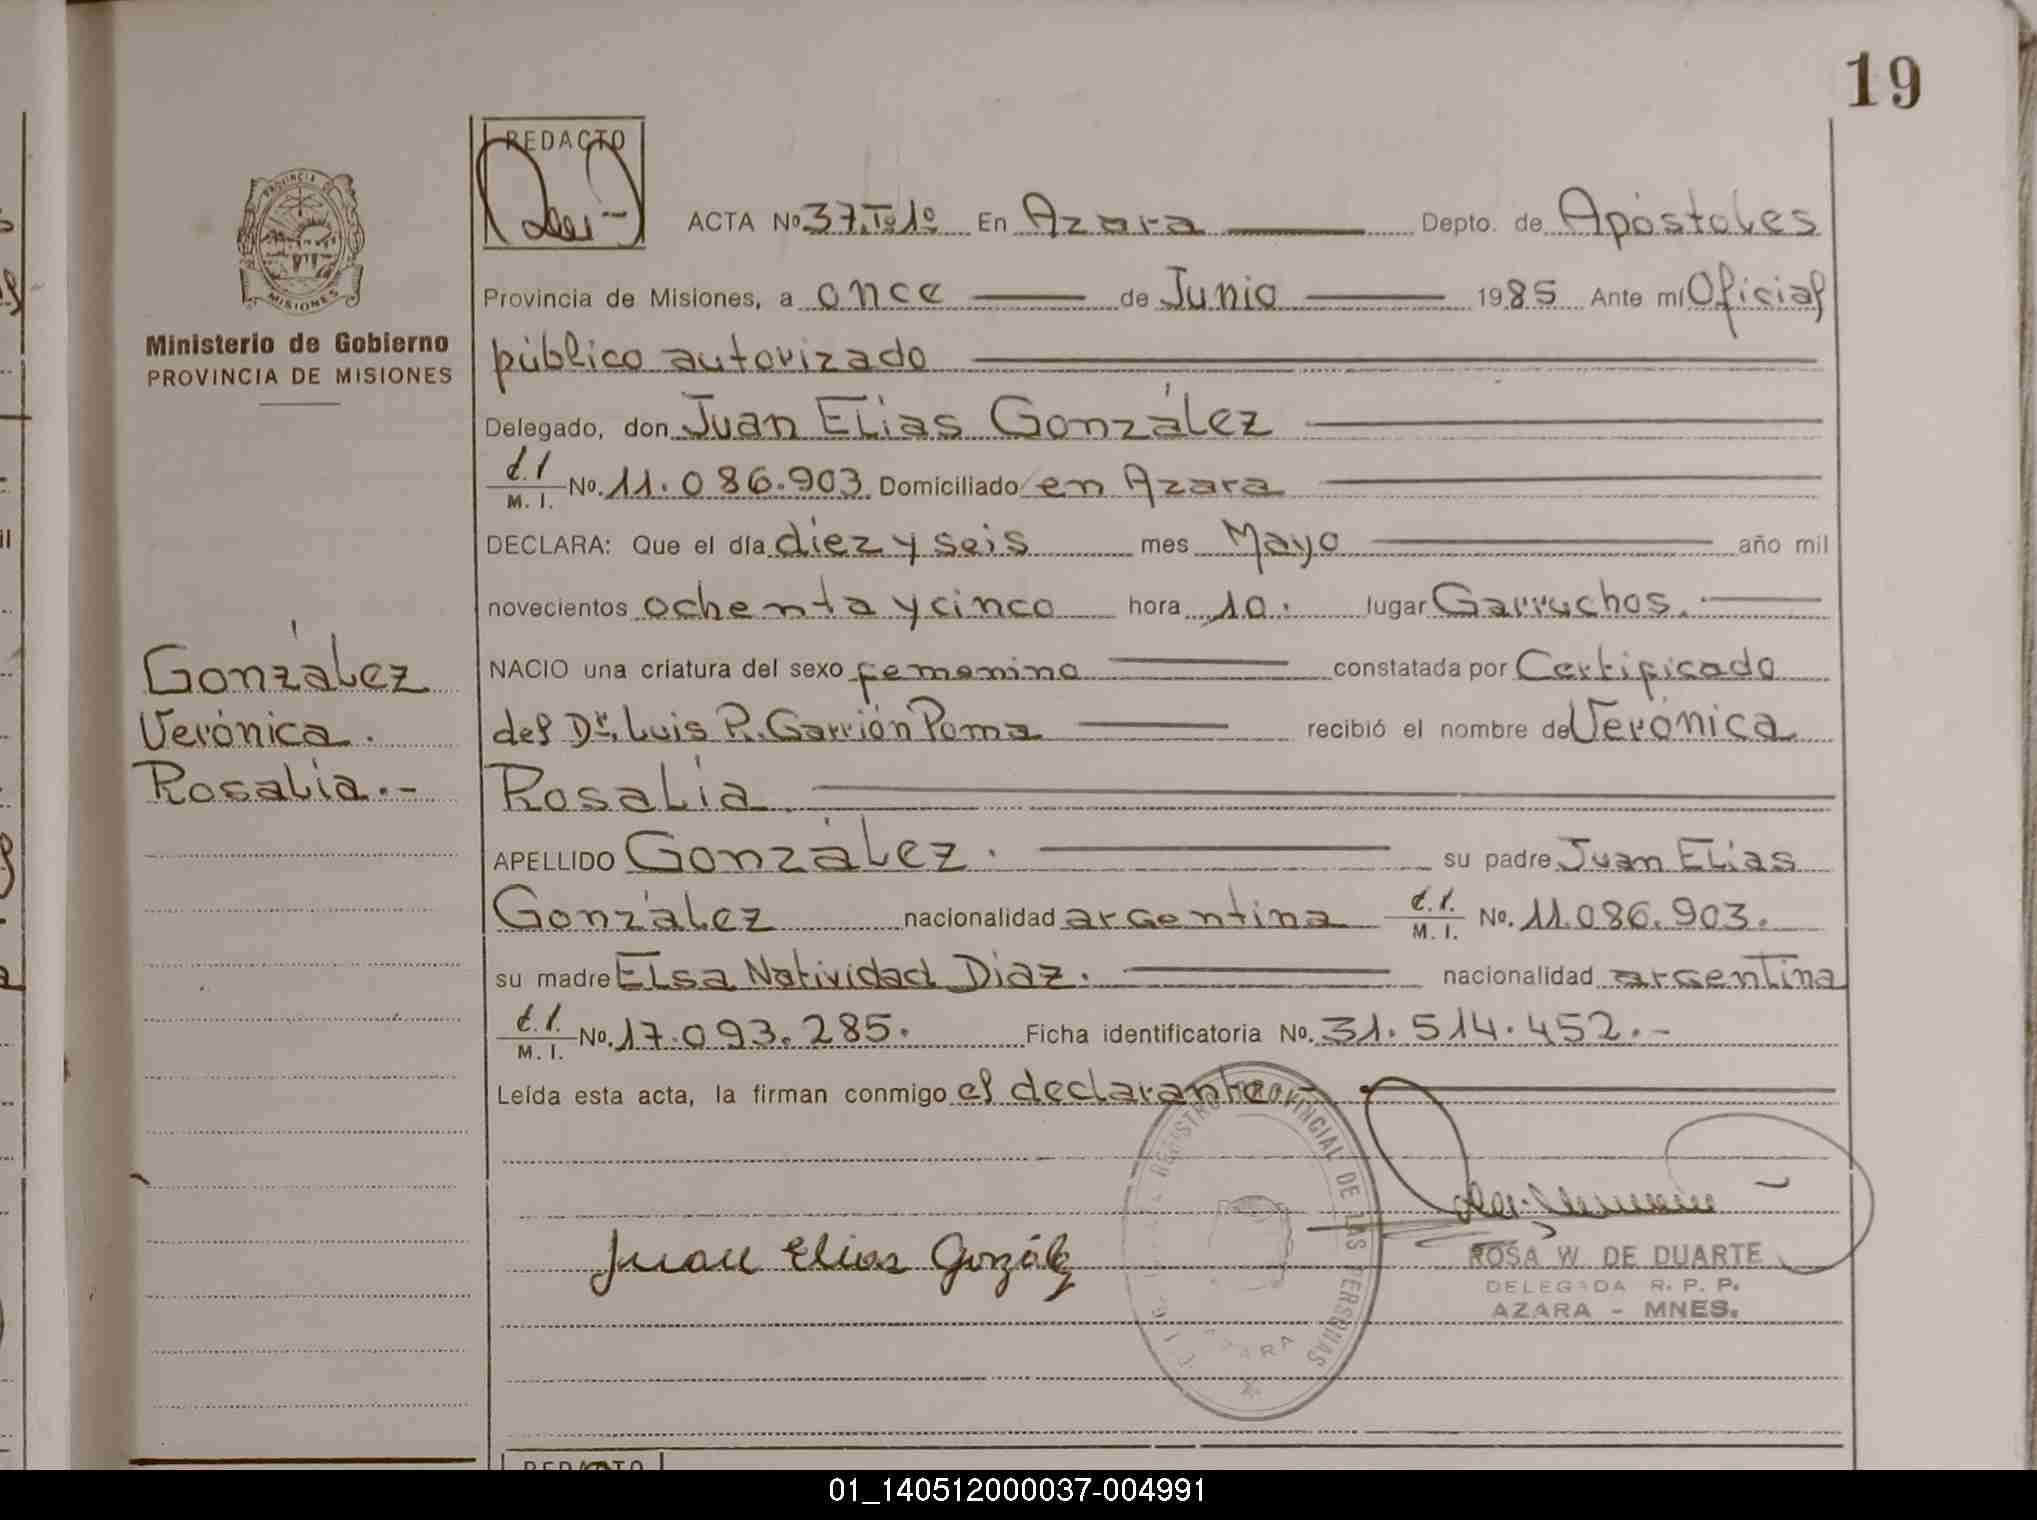 19
REDACTO
ACTA Nº 37.Tº1º En Azara Depto. de Apóstoles
PROVINCIA DE
MISIONES
Provincia de Misiones, a once de Junio 1985 Ante mí Oficial
Ministerio de Gobierno
PROVINCIA DE MISIONES
público autorizado
Delegado, don Juan Elias González
d.I
M. I. No. 11.086.903. Domiciliado en Azara
DECLARA: Que el día diez y seis mes Mayo año mil
novecientos ochenta y cinco hora 10. lugar Garruchos.
González
Verónica.
Rosalía.-
NACIO una criatura del sexo femenino constatada por Certificado
del Dr. Luis P. Garrión Poma recibió el nombre de Verónica
Rosalía
APELLIDO González. su padre Juan Elias
González nacionalidad argentina d.I.
M. I. No. 11.086.903.
su madre Elsa Natividad Diaz. nacionalidad argentina
d.I.
M. I. No. 17.093.285. Ficha identificatoria No. 31.514.452.-
Leída esta acta, la firman conmigo el declarante.-
REGISTRO PROVINCIAL DE LAS PERSONAS
AZARA
Juan Elias González
ROSA W. DE DUARTE
DELEGADA R. P. P.
AZARA - MNES.
REDACTO
01_140512000037-004991